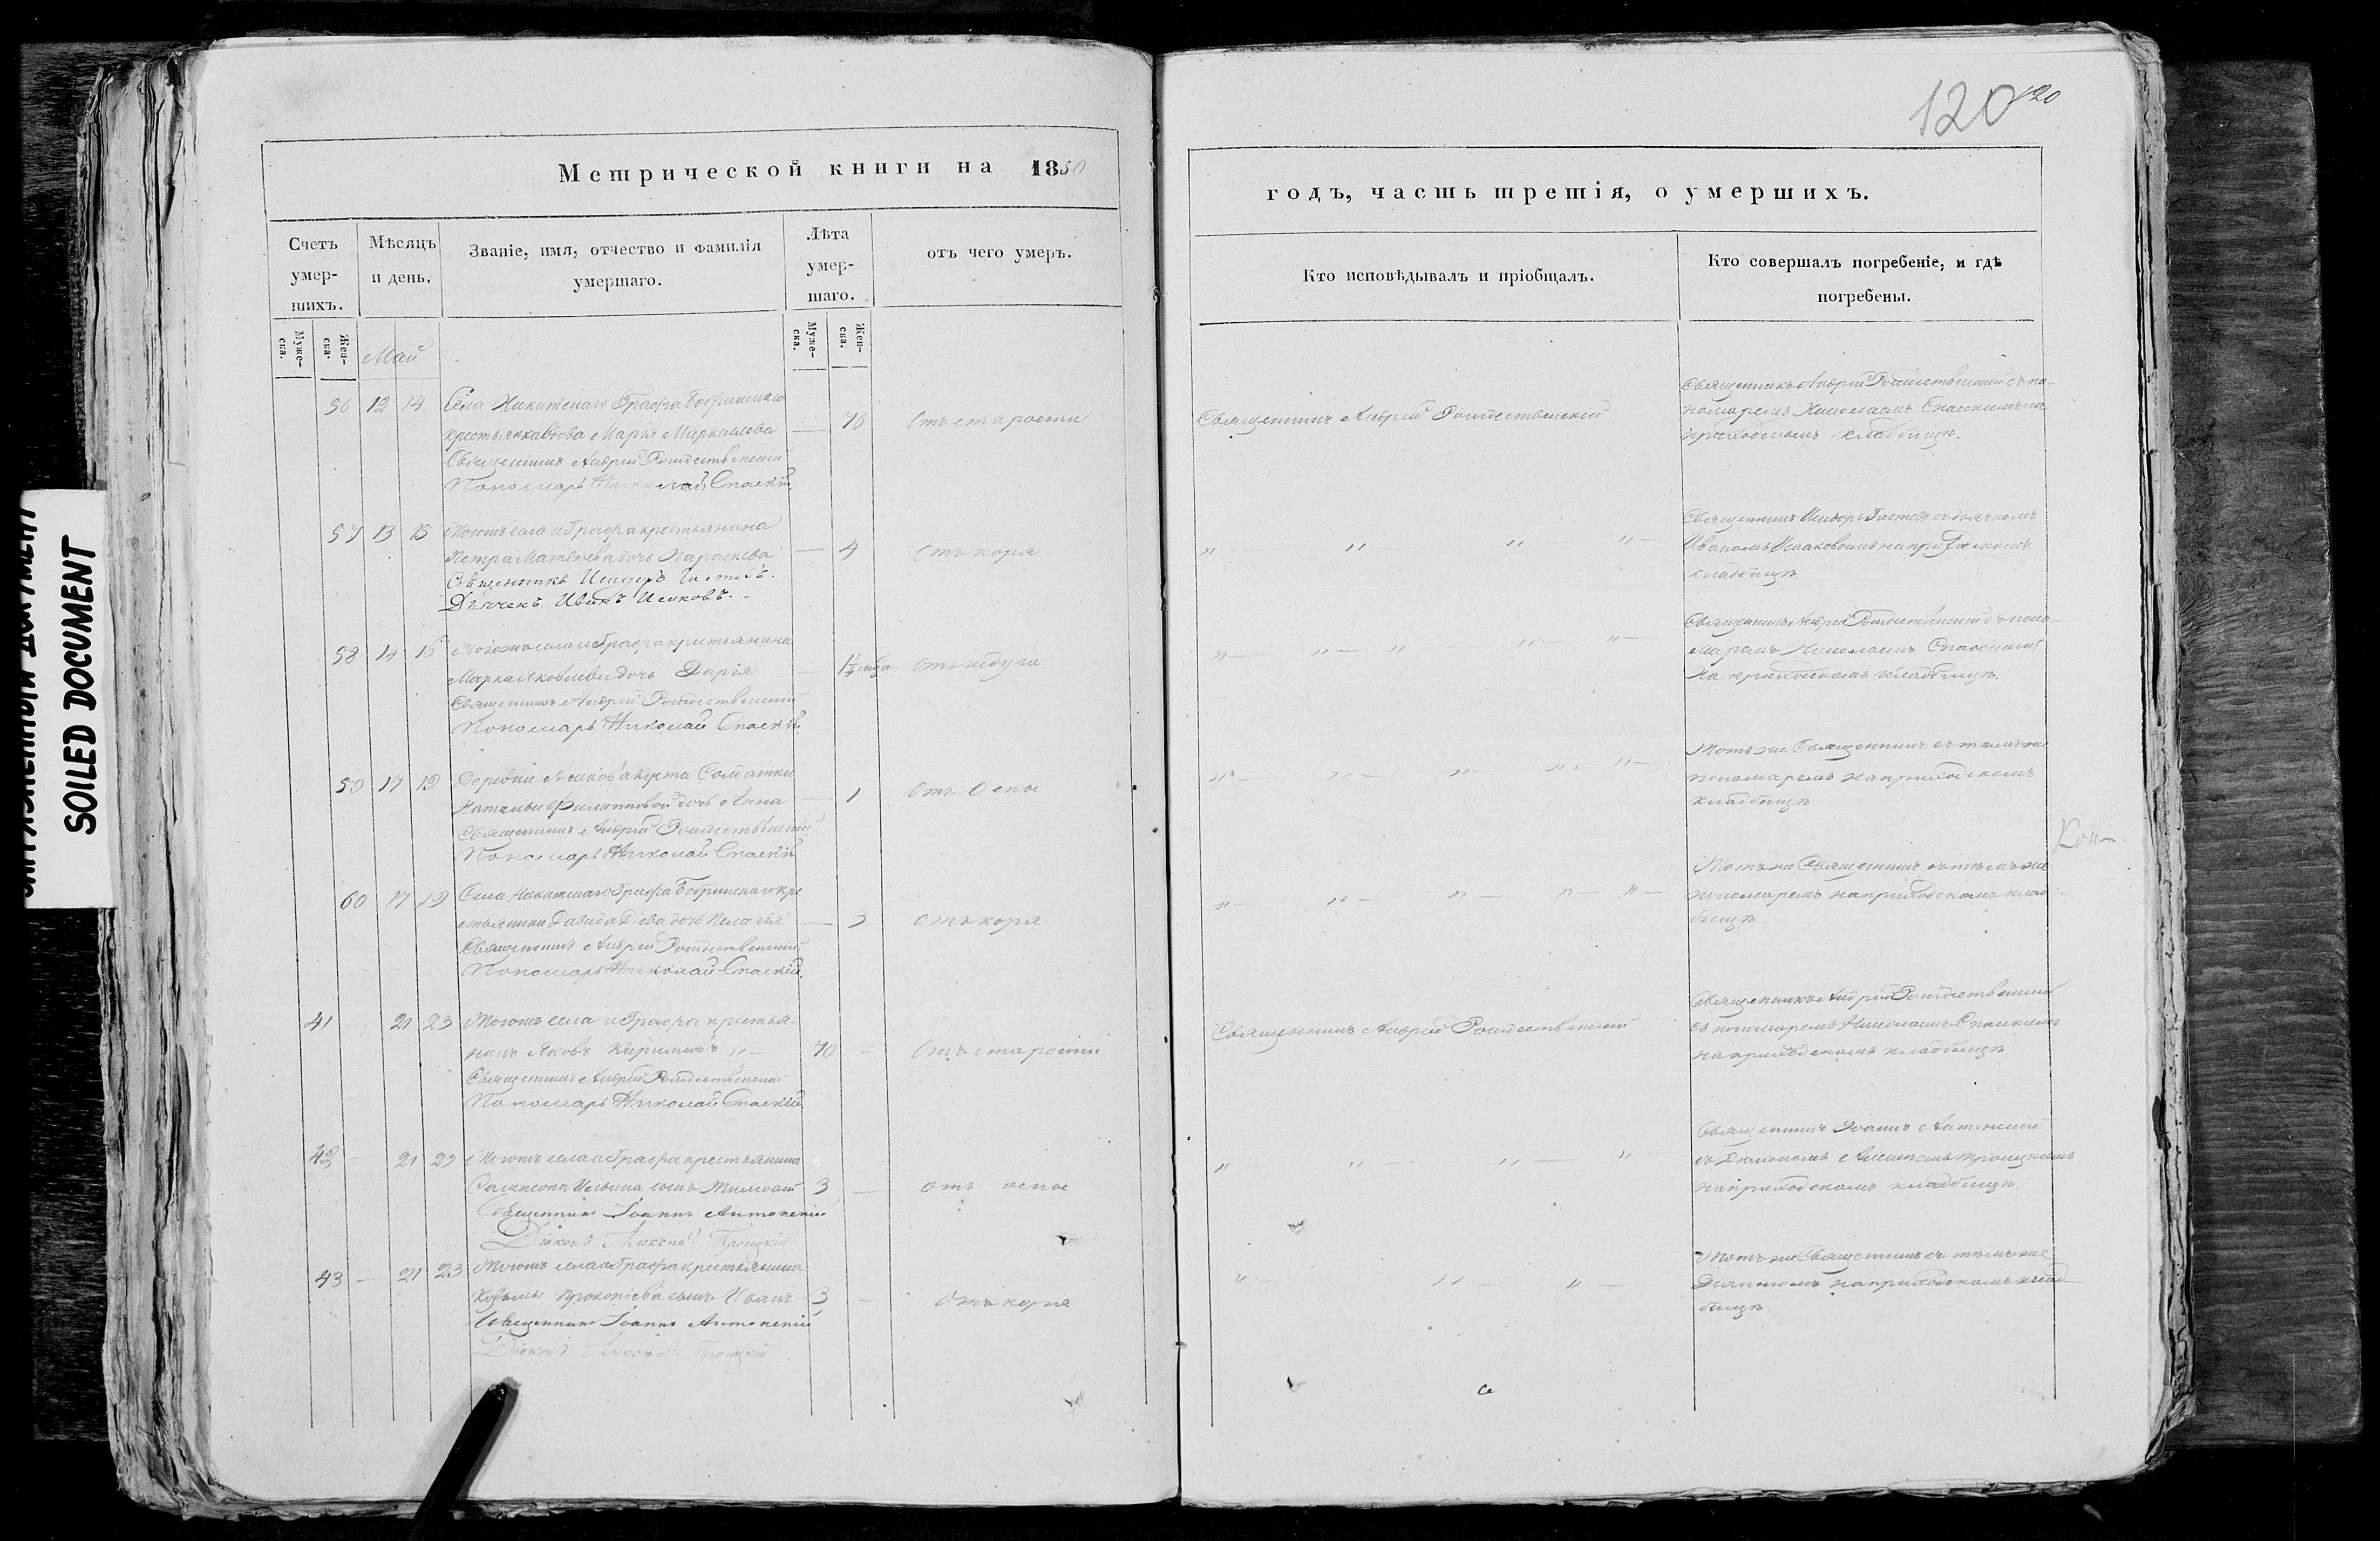 120 120
Метрической книги на 1850
годъ, часть третія, о умершихъ.
Счетъ умер-шихъ.
Мѣсяцъ и день.
Званіе, имя, отчество и фамилія умершаго.
Лѣта умер-шаго.
отъ чего умеръ.
Кто исповѣдывалъ и пріобщалъ.
Кто совершалъ погребеніе, и гдѣ погребены.
Муже-ска.
Жен-ска.
Муже-ска.
Жен-ска.
Май
56 12 14 Села Никитскаго Графа Бобринскаго
крестьянка вдова Марія Маркиллова — 76 Отъ старости
Священникъ Андрей Рождественскій
Пономарь Николай Спаскій.
Священникъ Андрей Рождественскій
Священникъ Андрей Рождественскій съ по-
номаремъ Николаемъ Спаскимъ на
приходскомъ кладбищѣ.
57 13 15 Тогожъ села и Графа крестьянина
Петра Матвѣева дочь Параскева — 4 Отъ коря
Священникъ Исидоръ
Дьячекъ Иванъ Исаковъ.
Священникъ Исидоръ съ дьячкомъ
Иваномъ Исаковымъ на приходскомъ
кладбищѣ.
58 14 16 Тогожъ села и Графа крестьянина
Марка Яковлева дочь Дарія — 1½ мѣса Отъ недуга
Священникъ Андрей Рождественскій
Пономарь Николай Спаскій.
Священникъ Андрей Рождественскій съ поно-
маремъ Николаемъ Спаскимъ
На приходскомъ кладбищѣ.
59 17 19 Деревни Солдатки
Натальи Филипповой дочь Анна — 1 Отъ Оспы
Священникъ Андрей Рождественскій
Пономарь Николай Спаскій
Тотъ же Священникъ съ тѣмъ же
пономаремъ на приходскомъ
кладбищѣ
60 17 19 Села Никитскаго Графа Бобринскаго кре
стьянина Давида дочь Пелагія — 3 Отъ коря
Священникъ Андрей Рождественскій
Пономарь Николай Спаскій.
Тотъ же Священникъ съ тѣмъ же
пономаремъ на приходскомъ клад-
бищѣ.
41 — 21 23 Тогожъ села и Графа крестья-
нинъ Яковъ Кириловъ 70 — Отъ старости
Священникъ Андрей Рождественскій
Пономарь Николай Спаскій.
Священникъ Андрей Рождественскій
Священникъ Андрей Рождественскій
съ пономаремъ Николаемъ Спаскимъ
на приходскомъ кладбищѣ.
42 — 21 23 Тогожъ села и Графа крестьянина
Сампсона Ильина сынъ 3 — отъ оспы
Священникъ Іоаннъ
Діаконъ Троицкій
Священникъ Іоаннъ
съ Діакономъ Троицкимъ
на приходскомъ кладбищѣ.
43 — 21 23 Тогожъ села и Графа крестьянина
Козьмы Прокопіева сынъ Иванъ 3 — Отъ коря
Священникъ Іоаннъ
Діаконъ Троицкій
Тотъ же Священникъ съ тѣмъ же
Діакономъ на приходскомъ клад-
бищѣ.
SOILED DOCUMENT